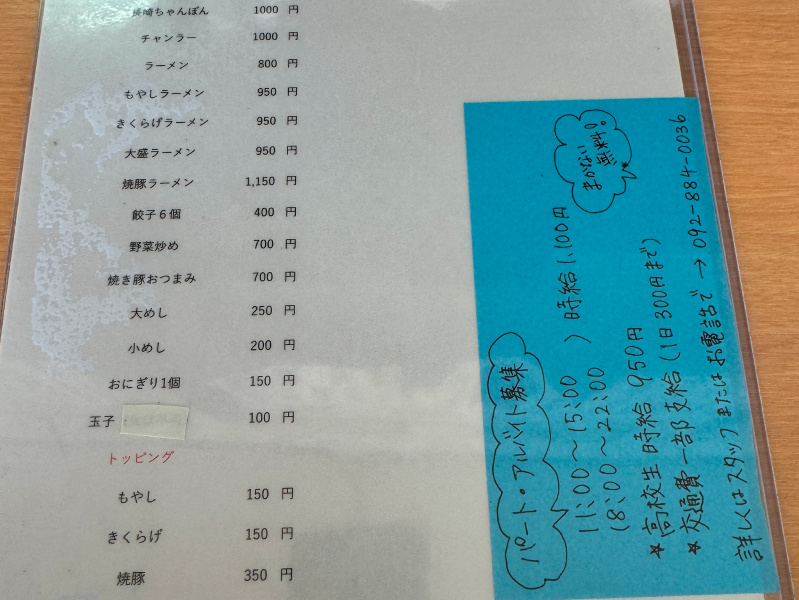 長崎ちゃんぽん 1000 円
チャンラー 1000 円
ラーメン 800 円
もやしラーメン 950 円
きくらげラーメン 950 円
大盛ラーメン 950 円
焼豚ラーメン 1,150 円
餃子６個 400 円
野菜炒め 700 円
焼き豚おつまみ 700 円
大めし 250 円
小めし 200 円
おにぎり1個 150 円
玉子 100 円
トッピング
もやし 150 円
きくらげ 150 円
焼豚 350 円
パート・アルバイト募集
まかない
無料!
11:00～15:00
18:00～22:00 ) 時給 1,100円
★高校生 時給 950円
★交通費 一部支給 (1日300円まで)
詳しくはスタッフまたはお電話で → 092-884-0036